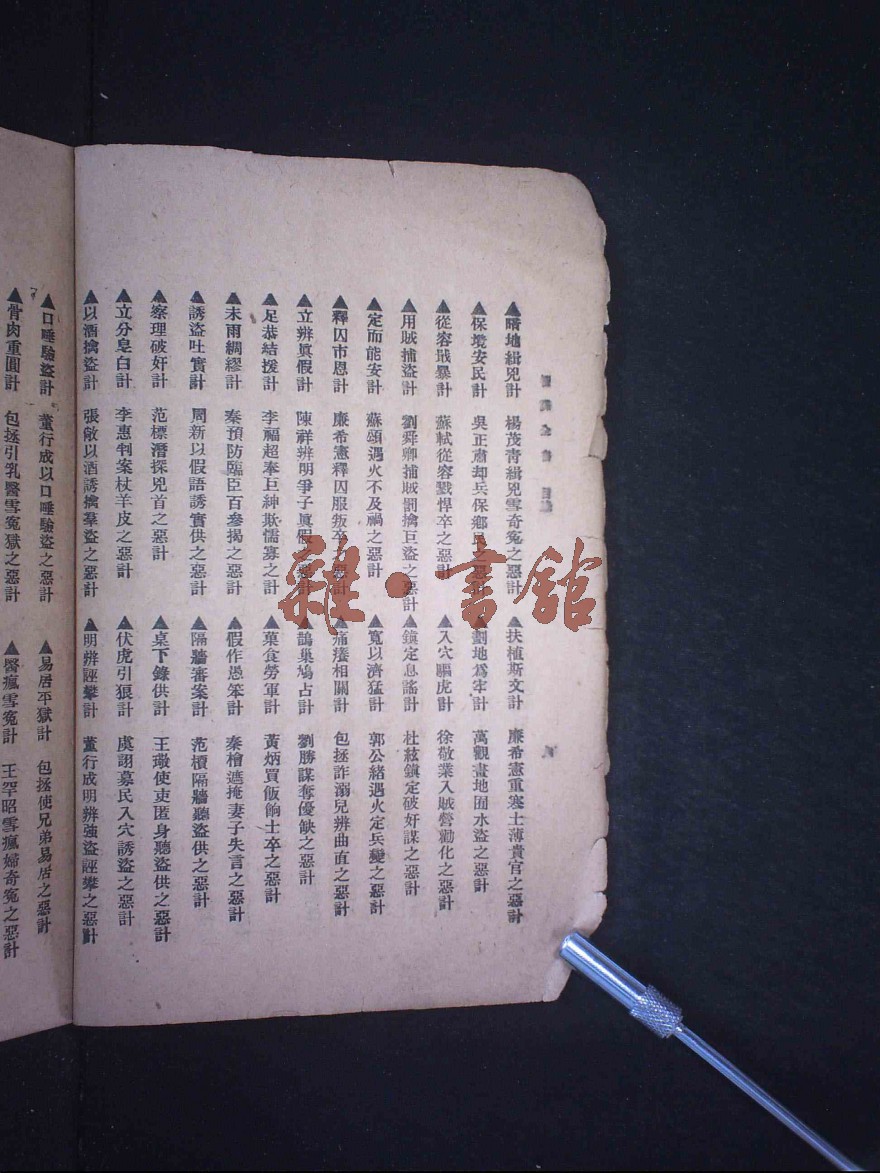 ▲暗地緝兇計 楊茂青緝兇雪奇冤之惡計 ▲扶植斯文計 廉希憲重寒士薄貴官之惡計
▲保境安民計 吳正肅却兵保鄉民之惡計 ▲劃地爲牢計 萬觀畫地困水盜之惡計
▲從容戢暴計 蘇軾從容戮悍卒之惡計 ▲入穴驅虎計 徐敬業入賊營勸化之惡計
▲用賊捕盜計 劉舜卿捕賊罰擒巨盜之惡計 ▲鎮定息謠計 杜紘鎮定破奸謀之惡計
▲定而能安計 蘇頌遇火不及禍之惡計 ▲寬以濟猛計 郭公緒遇火定兵變之惡計
▲釋囚市恩計 廉希憲釋囚服叛卒之惡計 ▲痛癢相關計 包拯詐溺兒辨曲直之惡計
▲立辨眞假計 陳祥辨明爭子眞假之惡計 ▲鵲巢鳩占計 劉勝謀奪優缺之惡計
▲足恭結援計 李福超奉巨紳欺懦寡之計 ▲菓食勞軍計 黃炳買飯餉士卒之惡計
▲未雨綢繆計 秦預防臨臣百參揭之惡計 ▲假作愚笨計 秦檜遮掩妻子失言之惡計
▲誘盜吐實計 周新以假語誘實供之惡計 ▲隔牆審案計 范檟隔牆聽盜供之惡計
▲察理破奸計 范標潛探兇首之惡計 ▲桌下錄供計 王璥使吏匿身聽盜供之惡計
▲立分皂白計 李惠判案杖羊皮之惡計 ▲伏虎引狼計 虞詡募民入穴誘盜之惡計
▲以酒擒盜計 張敞以酒誘擒羣盜之惡計 ▲明辨誣攀計 董行成明辨強盜誣攀之惡計
▲口唾驗盜計 董行成以口唾驗盜之惡計 ▲易居平獄計 包拯使兄弟易居之惡計
▲骨肉重圓計 包拯引乳醫雪冤獄之惡計 ▲醫瘋雪冤計 王罕昭雪瘋婦奇冤之惡計
雜·書館